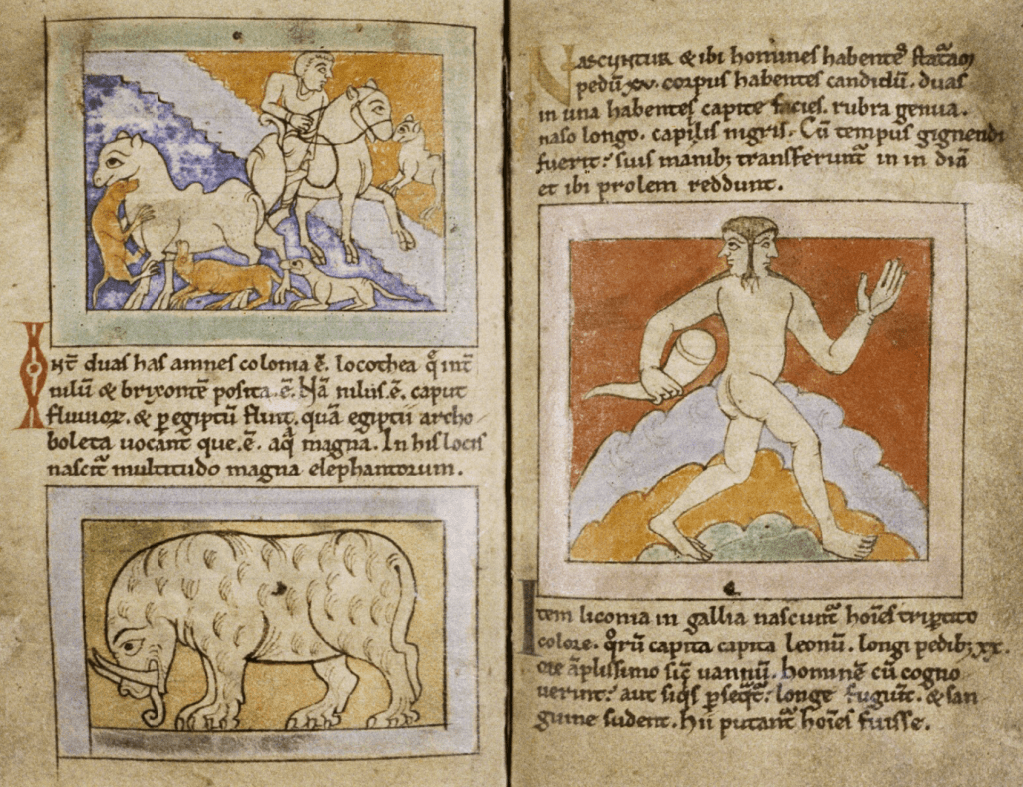 Int̄ duas has amnes colonia ē. locothea q̄ int̄
nilū & brixontē posita .ē. Nā nilus .ē. caput
fluuioꝝ. & ꝑ egiptū fluit. quā egiptii archo
boleta uocant que .ē. aq̄ magna. In his locis
nascit̄ multitudo magna elephantorum.
Nascuntur & ibi homines habentes staturā
pedū xv. corpus habentes candidū. duas
in una habentes capite facies. rubra genua.
naso longo. capillis nigris. Cū tempus gignendi
fuerit: suis manibꝫ transferunt̄ in in diā
et ibi prolem reddunt.
Item liconia in gallia nascunt̄ hoīes tripertito
colore. qꝛū capita capita leonū. longi pedibꝫ xx.
ore āplissimo sic̄ uannū. hominē cū cogno
uerint: aut siq̄s ꝑseq̄t̄: longe fugiunt̄. & san
guine sudent. hii putant̄ hoīes fuisse.